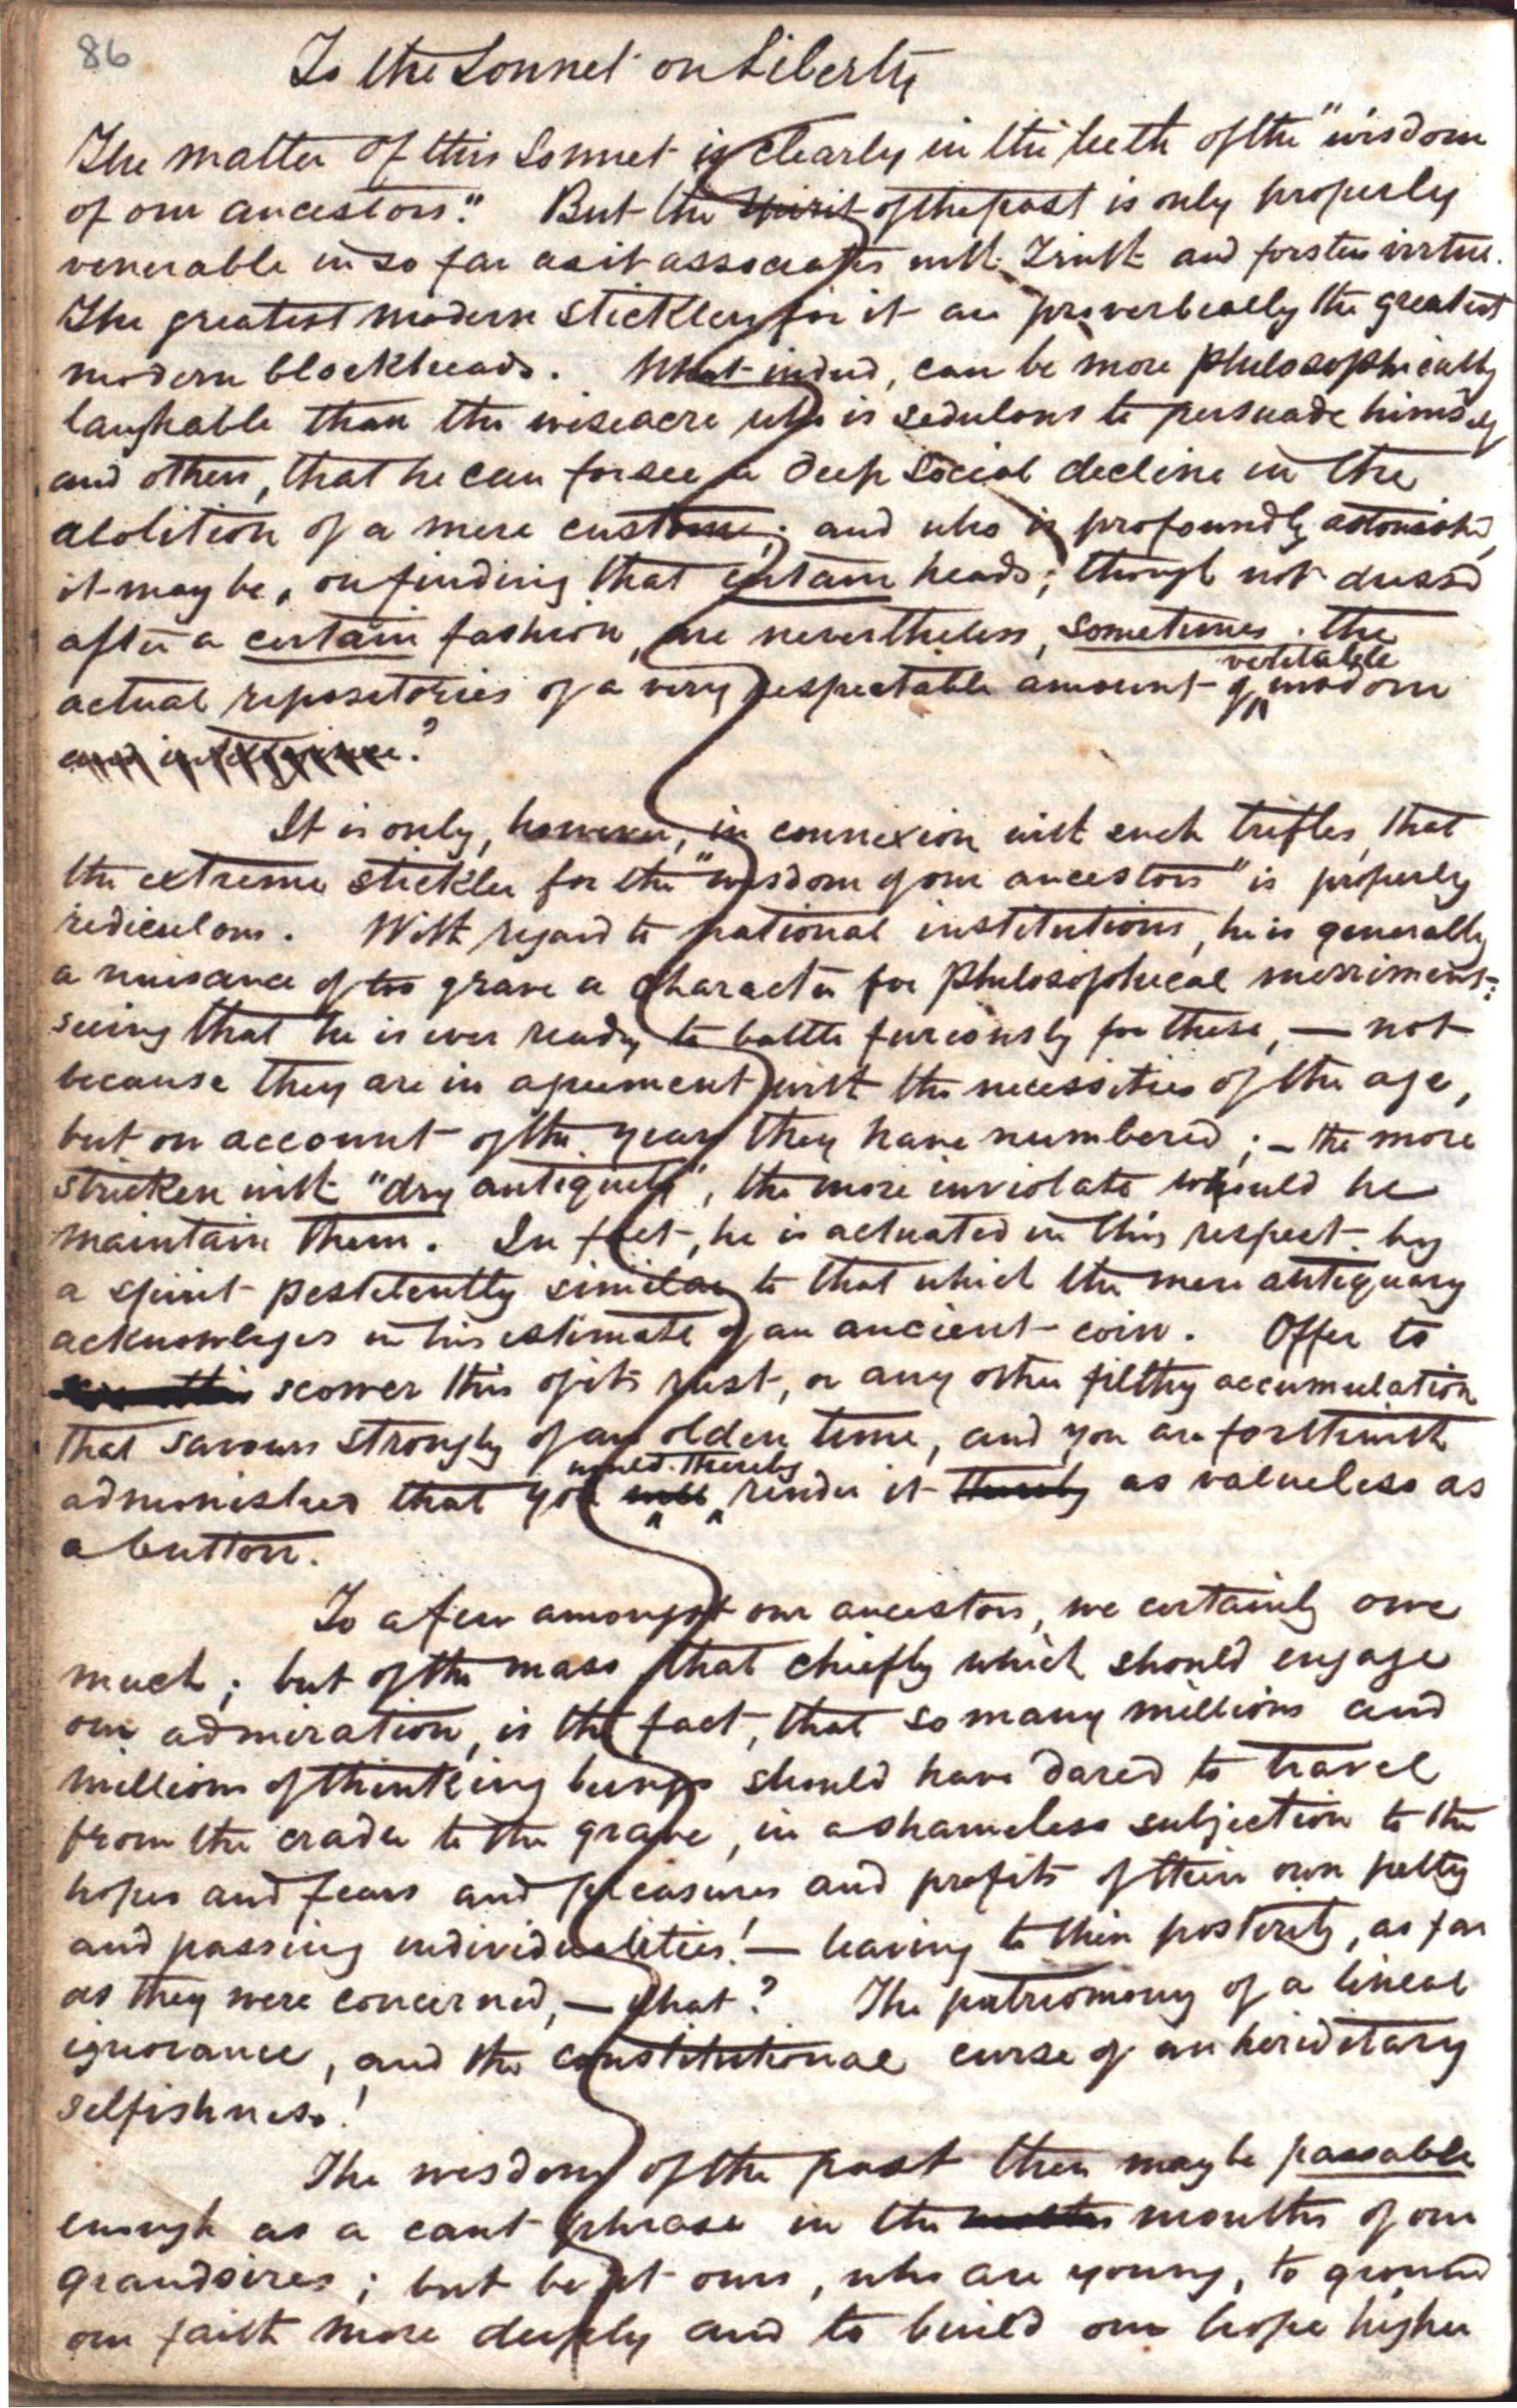 86
To the Sonnet on Liberty
The matter of this Sonnet is clearly in the teeth of the "wisdom
of our ancestors." But the spirit of the past is only properly
venerable in so far as it associates with Truth and forsters virtue.
The greatest modern sticklers for it are proverbeally the greatest
modern blockheads. What indeed, can be more philosophically
laughable than the wiseacre who is sedulous to persuade himself
and others, that he can forsee a deep social decline in the
abolition of a mere custom; and who is profoundly astonish'd,
it may be, on finding that certain heads; though not dress'd
after a certain fashion, are nevertheless, sometimes the
veritable
actual repositories of a very respectable amount of wisdom
and intelligence?
It is only, however, in connexion with such trifles, that
the extreme stickler for the "wisdom of our ancestors" is properly
rediculous. With regard to national institutions, he is generally
a nuisance of too grave a character for philosophical merriment:
seeing that he is ever ready to battle furiously for these, — not
because they are in agreement with the necessities of the age,
but on account of the years they have numbered; – the more
stricken with "dry antiquity", the more inviolate would he
maintain them. In fact, he is actuated in this respect by
a spirit pestilently similar to that which the mere antiquary
acknowleges in his estimate of an ancient coin. Offer to
scower this of its rust, or any other filthy accumulation
that savours strongly of an olden time, and you are forthwith
would thereby
admonished that you will render it thereby as valueless as
a button.
To a few amongst our ancestors, we certainly owe
much; but of the mass that chiefly which should engage
our admiration, is the fact, that so many millions and
millions of thinking beings should have dared to travel
from the cradle to the grave, in a shameless subjection to the
hopes and fears and pleasures and profits of their own petty
and passing individualities! — leaving to their posterity, as far
as they were concerned, — what? The patriomony of a lineal
ignorance, and the constitutional curse of an hereditary
selfishness!
The wisdom of the past then may be passable
enough as a cant phrase in the mouths of our
grandsires; but be it ours, who are young, to ground
our faith more deeply and to build our hope higher